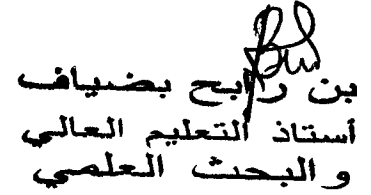 بن رابح بضياف
أستاذ التعليم العالي
و البحث العلمي